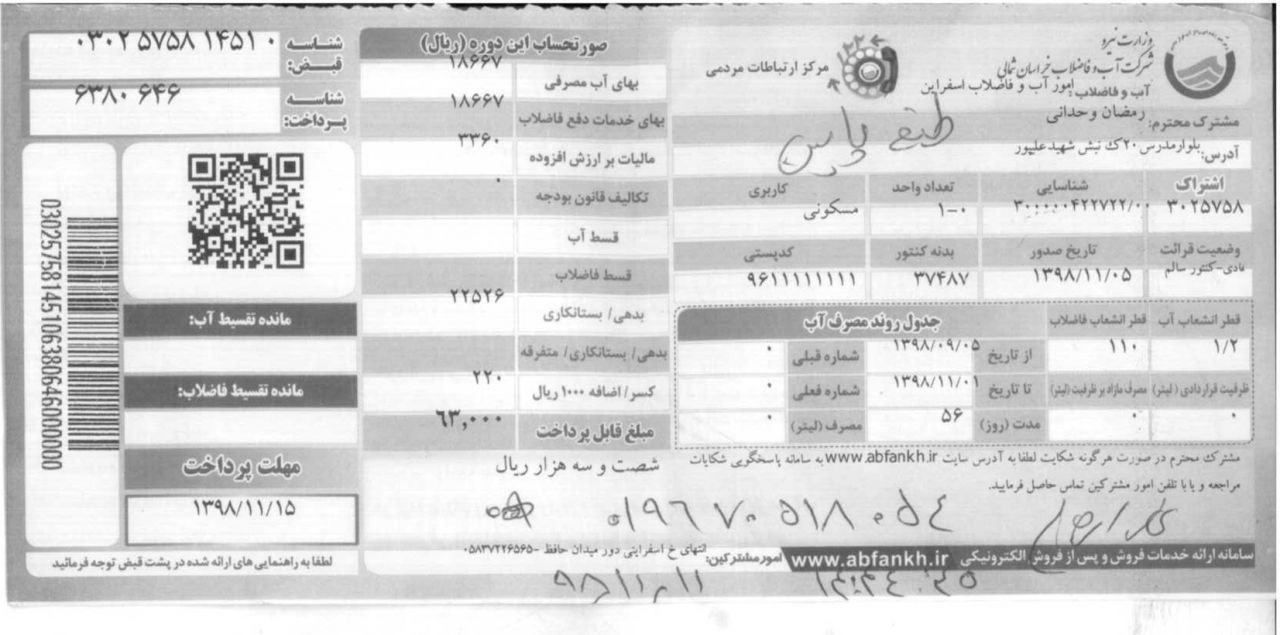 وزارت نیرو
شرکت آب و فاضلاب خراسان شمالی
آب و فاضلاب: امور آب و فاضلاب اسفراین
۱۲۲
مرکز ارتباطات مردمی
مشترک محترم: رمضان وحدانی
آدرس: بلوارمدرس ۲۰ک نبش شهیدعلیپور
اشتراک شناسایی تعداد واحد کاربری
۳۰۲۵۷۵۸ ۳۰۰۰۰۰۴۲۲۷۲۲/۰۰ ۱-۰ مسکونی
وضعیت قرائت تاریخ صدور بدنه کنتور کدپستی
عادی-کنتور سالم ۱۳۹۸/۱۱/۰۵ ۳۷۴۸۷ ۹۶۱۱۱۱۱۱۱۱
قطر انشعاب آب قطر انشعاب فاضلاب جدول روند مصرف آب
۱/۲ ۱۱۰ از تاریخ ۱۳۹۸/۰۹/۰۵ شماره قبلی ۰
ظرفیت قراردادی (لیتر) مصرف مازاد بر ظرفیت (لیتر) تا تاریخ ۱۳۹۸/۱۱/۰۱ شماره فعلی ۰
۰ ۰ مدت (روز) ۵۶ مصرف (لیتر) ۰
مشترک محترم در صورت هرگونه شکایت لطفا به آدرس سایت www.abfankh.ir به سامانه پاسخگویی شکایات
مراجعه و یا با تلفن امور مشترکین تماس حاصل فرمایید.
۰۱۹۶۷۰۵۱۸۰۵۴
سامانه ارائه خدمات فروش و پس از فروش الکترونیکی www.abfankh.ir امور مشترکین: انتهای خ اسفراینی دور میدان حافظ -۰۵۸۳۷۲۲۶۵۶۵
۹۸/۱۱/۱۱
صورتحساب این دوره (ریال)
بهای آب مصرفی ۱۸۶۶۷
بهای خدمات دفع فاضلاب ۱۸۶۶۷
مالیات بر ارزش افزوده ۳۳۶۰
تکالیف قانون بودجه ۰
قسط آب
قسط فاضلاب
بدهی/ بستانکاری ۲۲۵۲۶
بدهی/ بستانکاری/ متفرقه
کسر/ اضافه ۱۰۰۰ ریال ۲۲۰
مبلغ قابل پرداخت ۶۳,۰۰۰
شصت و سه هزار ریال
شناسه قبض: ۰۳۰۲۵۷۵۸۱۴۵۱۰
شناسه پرداخت: ۶۳۸۰۶۴۶
03025758145106380646000000
مانده تقسیط آب:
مانده تقسیط فاضلاب:
مهلت پرداخت
۱۳۹۸/۱۱/۱۵
لطفا به راهنمایی های ارائه شده در پشت قبض توجه فرمائید